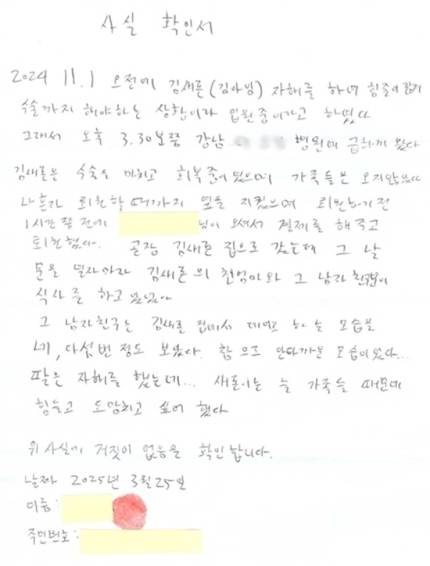 사실 확인서
2024 11.1 오전에 김새론(김아임) 자해를 하여 힘줄이
수술까지 해야하는 상황이라 입원중이라고 하였다
그래서 오후 3.30보쯤 강남 병원에 급하게 갔다
김새론은 수술을 마치고 회복중이었으며 가족들은 오지않았고
나 혼자 퇴원할때까지 옆을 지켰으며 퇴원하기전
1시간 쯤 전에 님이 오셔서 결제를 해주고
퇴원했다. 곧장 김새론 집으로 갔는데 그 날
문을 열자마자 김새론의 친엄마와 그 남자친구가
식사를 하고 있었다
그 남자친구는 김새론 집에서 데리고 노는 모습을
네, 다섯번 정도 보았다. 참으로 안타까운 모습이었다...
팔은 자해를 했는데... 새론이는 늘 가족들 때문에
힘들고 도망치고 싶어 했다
위 사실에 거짓이 없음을 확인합니다.
날짜 2025년 3월 25일
이름:
주민번호: